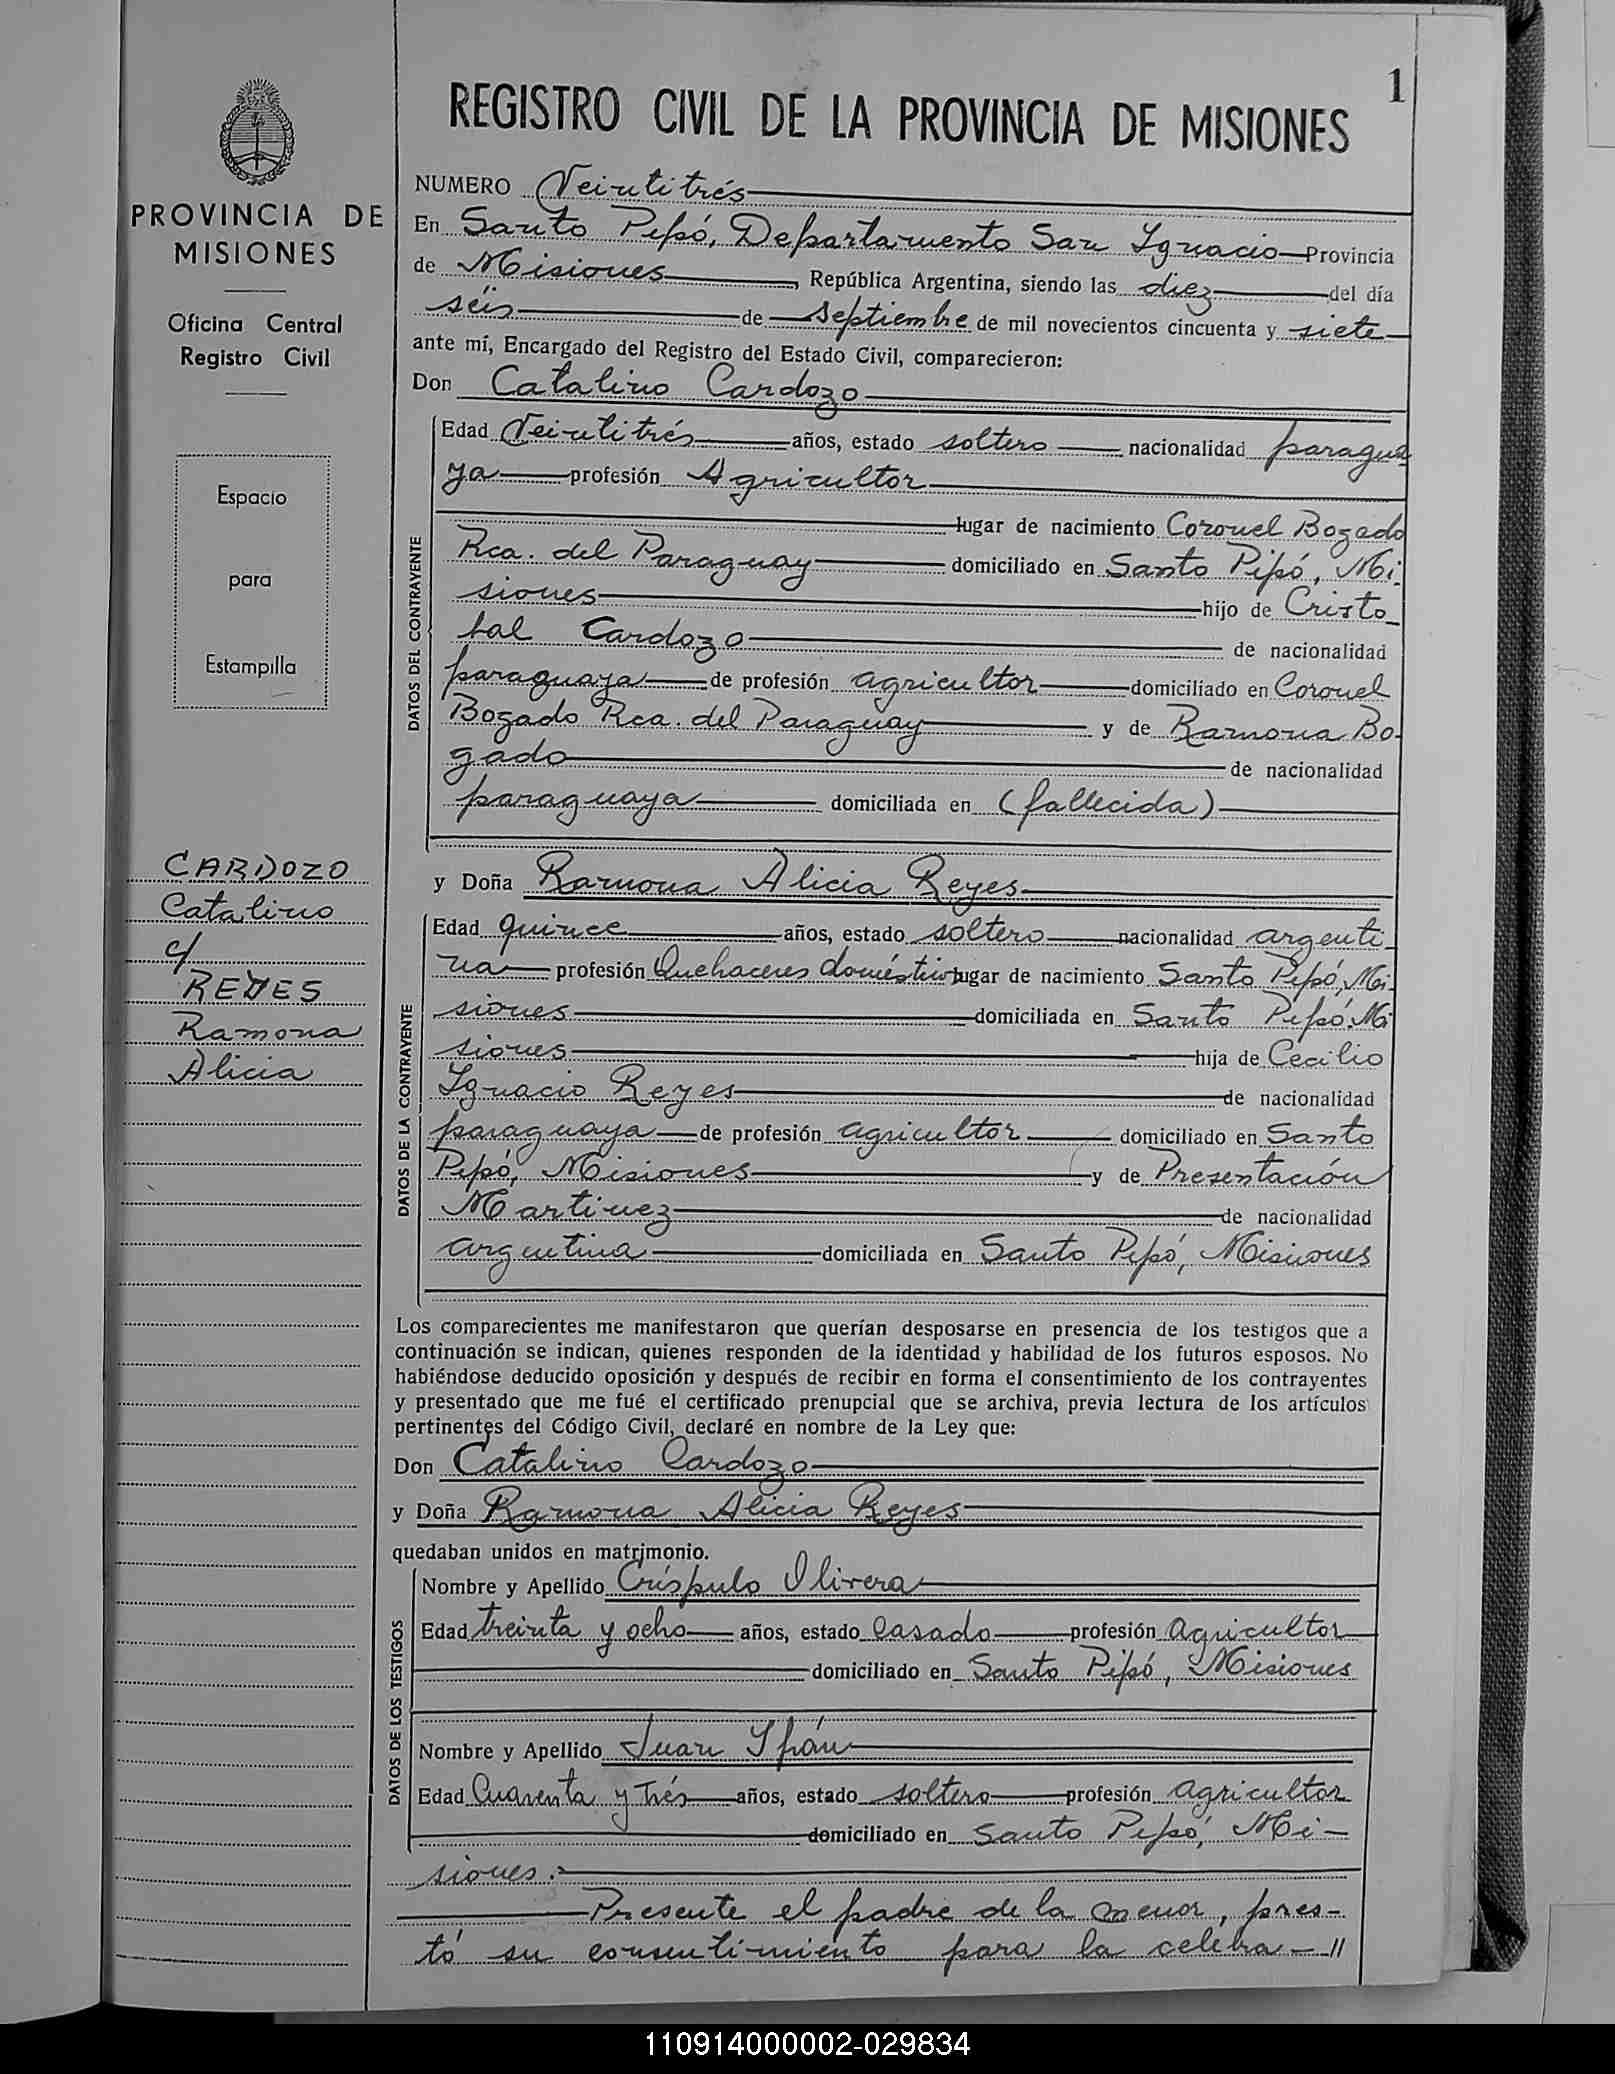 1
REGISTRO CIVIL DE LA PROVINCIA DE MISIONES
PROVINCIA DE
MISIONES
Oficina Central
Registro Civil
Espacio
para
Estampilla
CARDOZO
Catalino
c/
REYES
Ramona
Alicia
NUMERO Veintitrés
En Santo Pipó, Departamento San Ignacio Provincia
de Misiones, República Argentina, siendo las diez del día
séis de septiembre de mil novecientos cincuenta y siete
ante mí, Encargado del Registro del Estado Civil, comparecieron:
Don Catalino Cardozo
DATOS DEL CONTRAYENTE
Edad Veintitrés años, estado soltero nacionalidad paragua
ya profesión Agricultor
lugar de nacimiento Coronel Bogado
Rca. del Paraguay domiciliado en Santo Pipó, Mi
siones hijo de Cristo
bal Cardozo de nacionalidad
paraguaya de profesión agricultor domiciliado en Coronel
Bogado Rca. del Paraguay y de Ramona Bo
gado de nacionalidad
paraguaya domiciliada en (fallecida)
y Doña Ramona Alicia Reyes
DATOS DE LA CONTRAYENTE
Edad quince años, estado soltero nacionalidad argenti
na profesión Quehaceres domésticos lugar de nacimiento Santo Pipó, Mi
siones domiciliada en Santo Pipó Mi
siones hija de Cecilio
Ignacio Reyes de nacionalidad
paraguaya de profesión agricultor domiciliado en Santo
Pipó, Misiones y de Presentación
Martinez de nacionalidad
argentina domiciliada en Santo Pipó, Misiones
Los comparecientes me manifestaron que querían desposarse en presencia de los testigos que a
continuación se indican, quienes responden de la identidad y habilidad de los futuros esposos. No
habiéndose deducido oposición y después de recibir en forma el consentimiento de los contrayentes
y presentado que me fué el certificado prenupcial que se archiva, previa lectura de los artículos
pertinentes del Código Civil, declaré en nombre de la Ley que:
Don Catalino Cardozo
y Doña Ramona Alicia Reyes
quedaban unidos en matrimonio.
DATOS DE LOS TESTIGOS
Nombre y Apellido Críspulo Olivera
Edad treinta y ocho años, estado casado profesión Agricultor
domiciliado en Santo Pipó, Misiones
Nombre y Apellido Juan Ifrán
Edad Cuarenta y Trés años, estado soltero profesión agricultor
domiciliado en Santo Pipó, Mi-
siones.-
Presente el padre de la menor, pres-
tó su consentimiento para la celebra-//
110914000002-029834